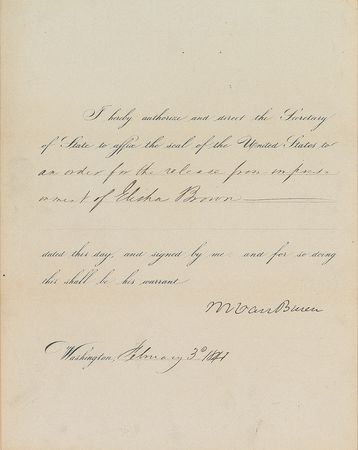 I hereby authorize and direct the Secretary
of State to affix the seal of the United States to
an order for the release from impris-
onment of Elisha Brown
dated this day, and signed by me and for so doing
this shall be his warrant
M Van Buren
Washington, February 3d 1841